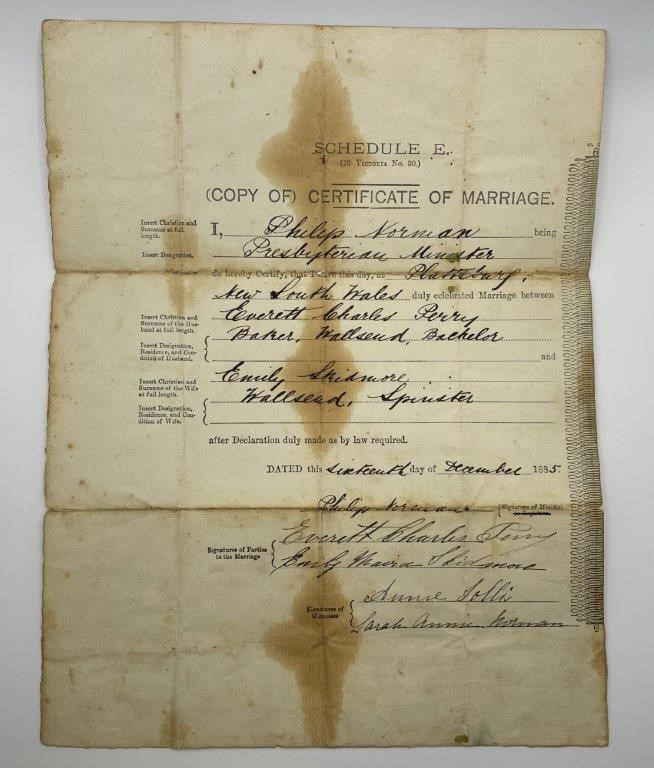 SCHEDULE E.
(19 Victoria No. 30.)
(COPY OF) CERTIFICATE OF MARRIAGE.
Insert Christian and Surname at full length.
I, Philip Norman being
Insert Designation.
Presbyterian Minister
do hereby Certify, that I have this day, at Plattsburg,
New South Wales duly celebrated Marriage between
Insert Christian and Surname of the Husband at full length.
Everett Charles Perry
Insert Designation, Residence, and Condition of Husband.
Baker, Wallsend, Bachelor
and
Insert Christian and Surname of the Wife at full length.
Emily Skidmore
Insert Designation, Residence, and Condition of Wife.
Wallsend, Spinster
after Declaration duly made as by law required.
DATED this sixteenth day of December 1885.
Philip Norman
(Signature of Minister or Registrar.
Signatures of Parties to the Marriage
Everett Charles Perry
Emily Skidmore
Signatures of Witnesses
Annie
Sarah Annie Norman